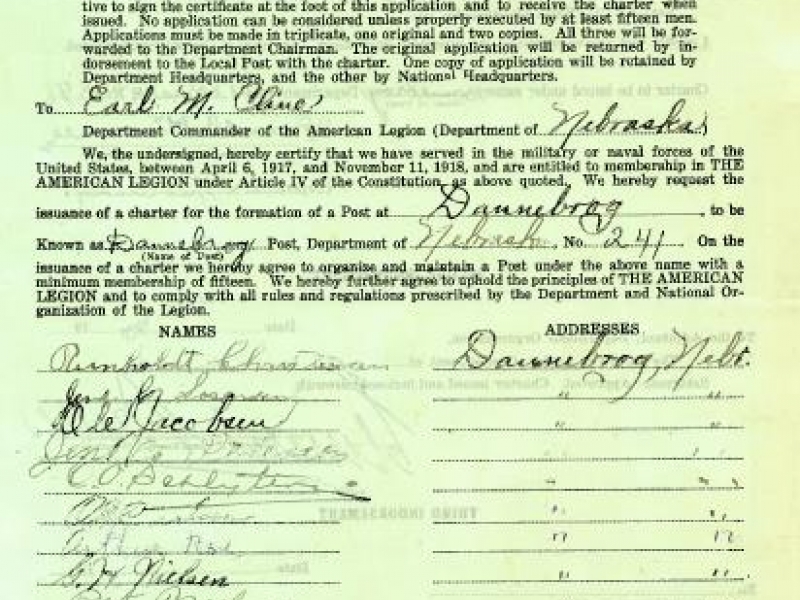 tive to sign the certificate at the foot of this application and to receive the charter when
issued. No application can be considered unless properly executed by at least fifteen men.
Applications must be made in triplicate, one original and two copies. All three will be for-
warded to the Department Chairman. The original application will be returned by in-
dorsement to the Local Post with the charter. One copy of application will be retained by
Department Headquarters, and the other by National Headquarters.
To Earl M. Cline
Department Commander of the American Legion (Department of Nebraska)
We, the undersigned, hereby certify that we have served in the military or naval forces of the
United States, between April 6, 1917, and November 11, 1918, and are entitled to membership in THE
AMERICAN LEGION under Article IV of the Constitution, as above quoted. We hereby request the
issuance of a charter for the formation of a Post at Dannebrog, to be
Known as Dannebrog Post, Department of Nebraska, No. 241 On the
(Name of Post)
issuance of a charter we hereby agree to organize and maintain a Post under the above name with a
minimum membership of fifteen. We hereby further agree to uphold the principles of THE AMERICAN
LEGION and to comply with all rules and regulations prescribed by the Department and National Or-
ganization of the Legion.
NAMES ADDRESSES
Dannebrog, Nebr.
" "
Ole Jacobsen " "
" "
" "
" "
" "
G. H. Nielsen " "
THIRD INDORSEMENT